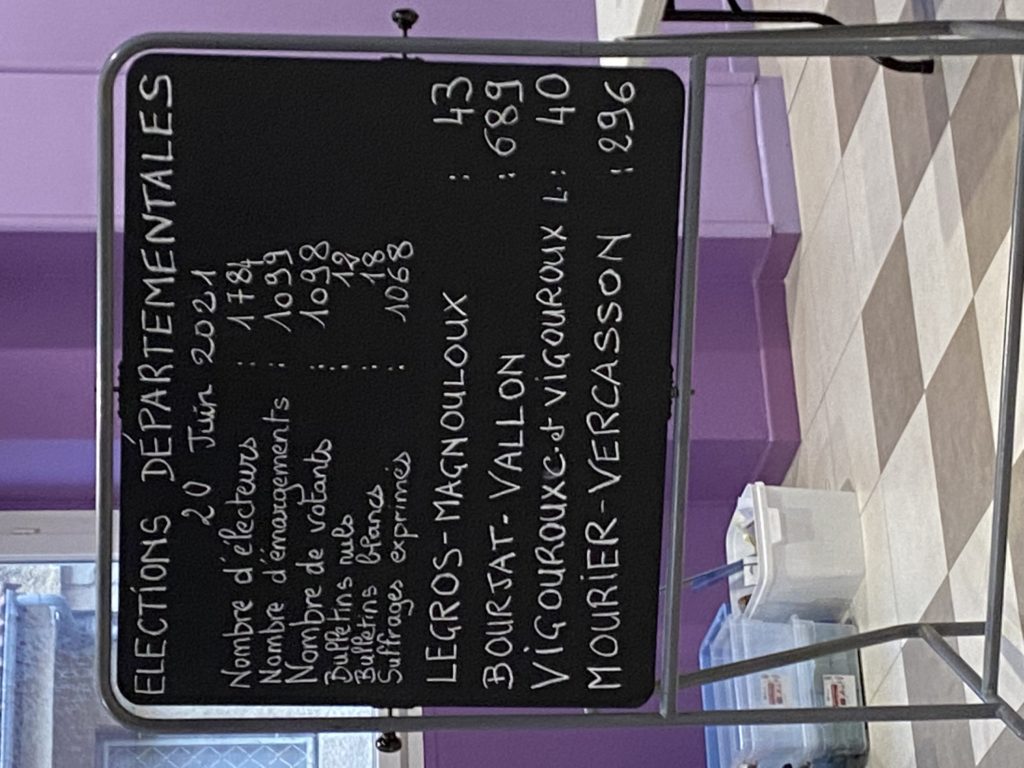 ELECTIONS DÉPARTEMENTALES
20 Juin 2021
Nombre d'électeurs : 1784
Nombre d'émargements : 1099
Nombre de votants : 1098
Bulletins nuls : 12
Bulletins blancs : 18
Suffrages exprimés : 1068
LEGROS-MAGNOULOUX : 43
BOURJAT-VALLON : 689
VIGOUROUX C. et VIGOUROUX L. : 40
MOURIER-VERCASSON : 296